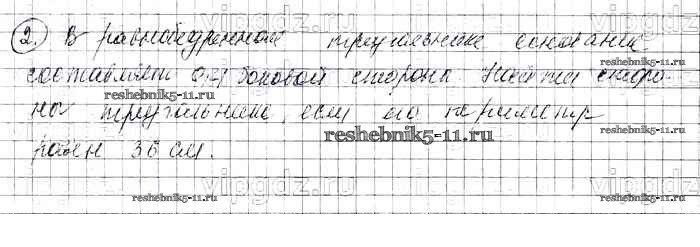 vipgdz.ru vipgdz.ru
2. В равнобедренном треугольнике основание
reshebnik5-11.ru reshebnik5-11.ru
составляет 0,4 боковой стороны. Найти сторо-
reshebnik5-11.ru
ны треугольника, если его периметр
reshebnik5-11.ru
равен 36 см.
vipgdz.ru vipgdz.ru
reshebnik5-11.ru reshebnik5-11.ru